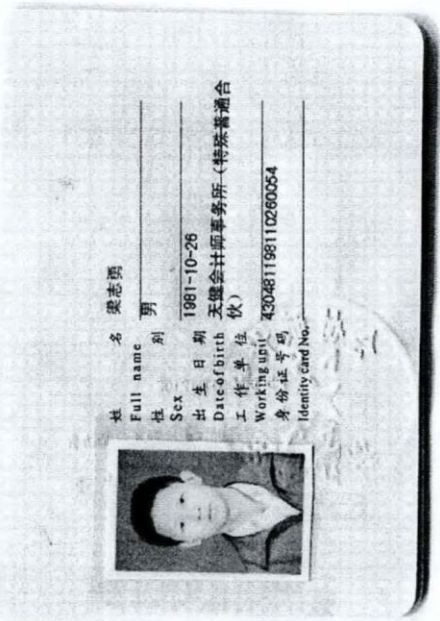 姓 名 梁志勇
Full name
性 别 男
Sex
出 生 日 期 1981-10-26
Date of birth
工 作 单 位 天健会计师事务所（特殊普通合
Working unit 伙）
身 份 证 号 码 430481198110260054
Identity card No.